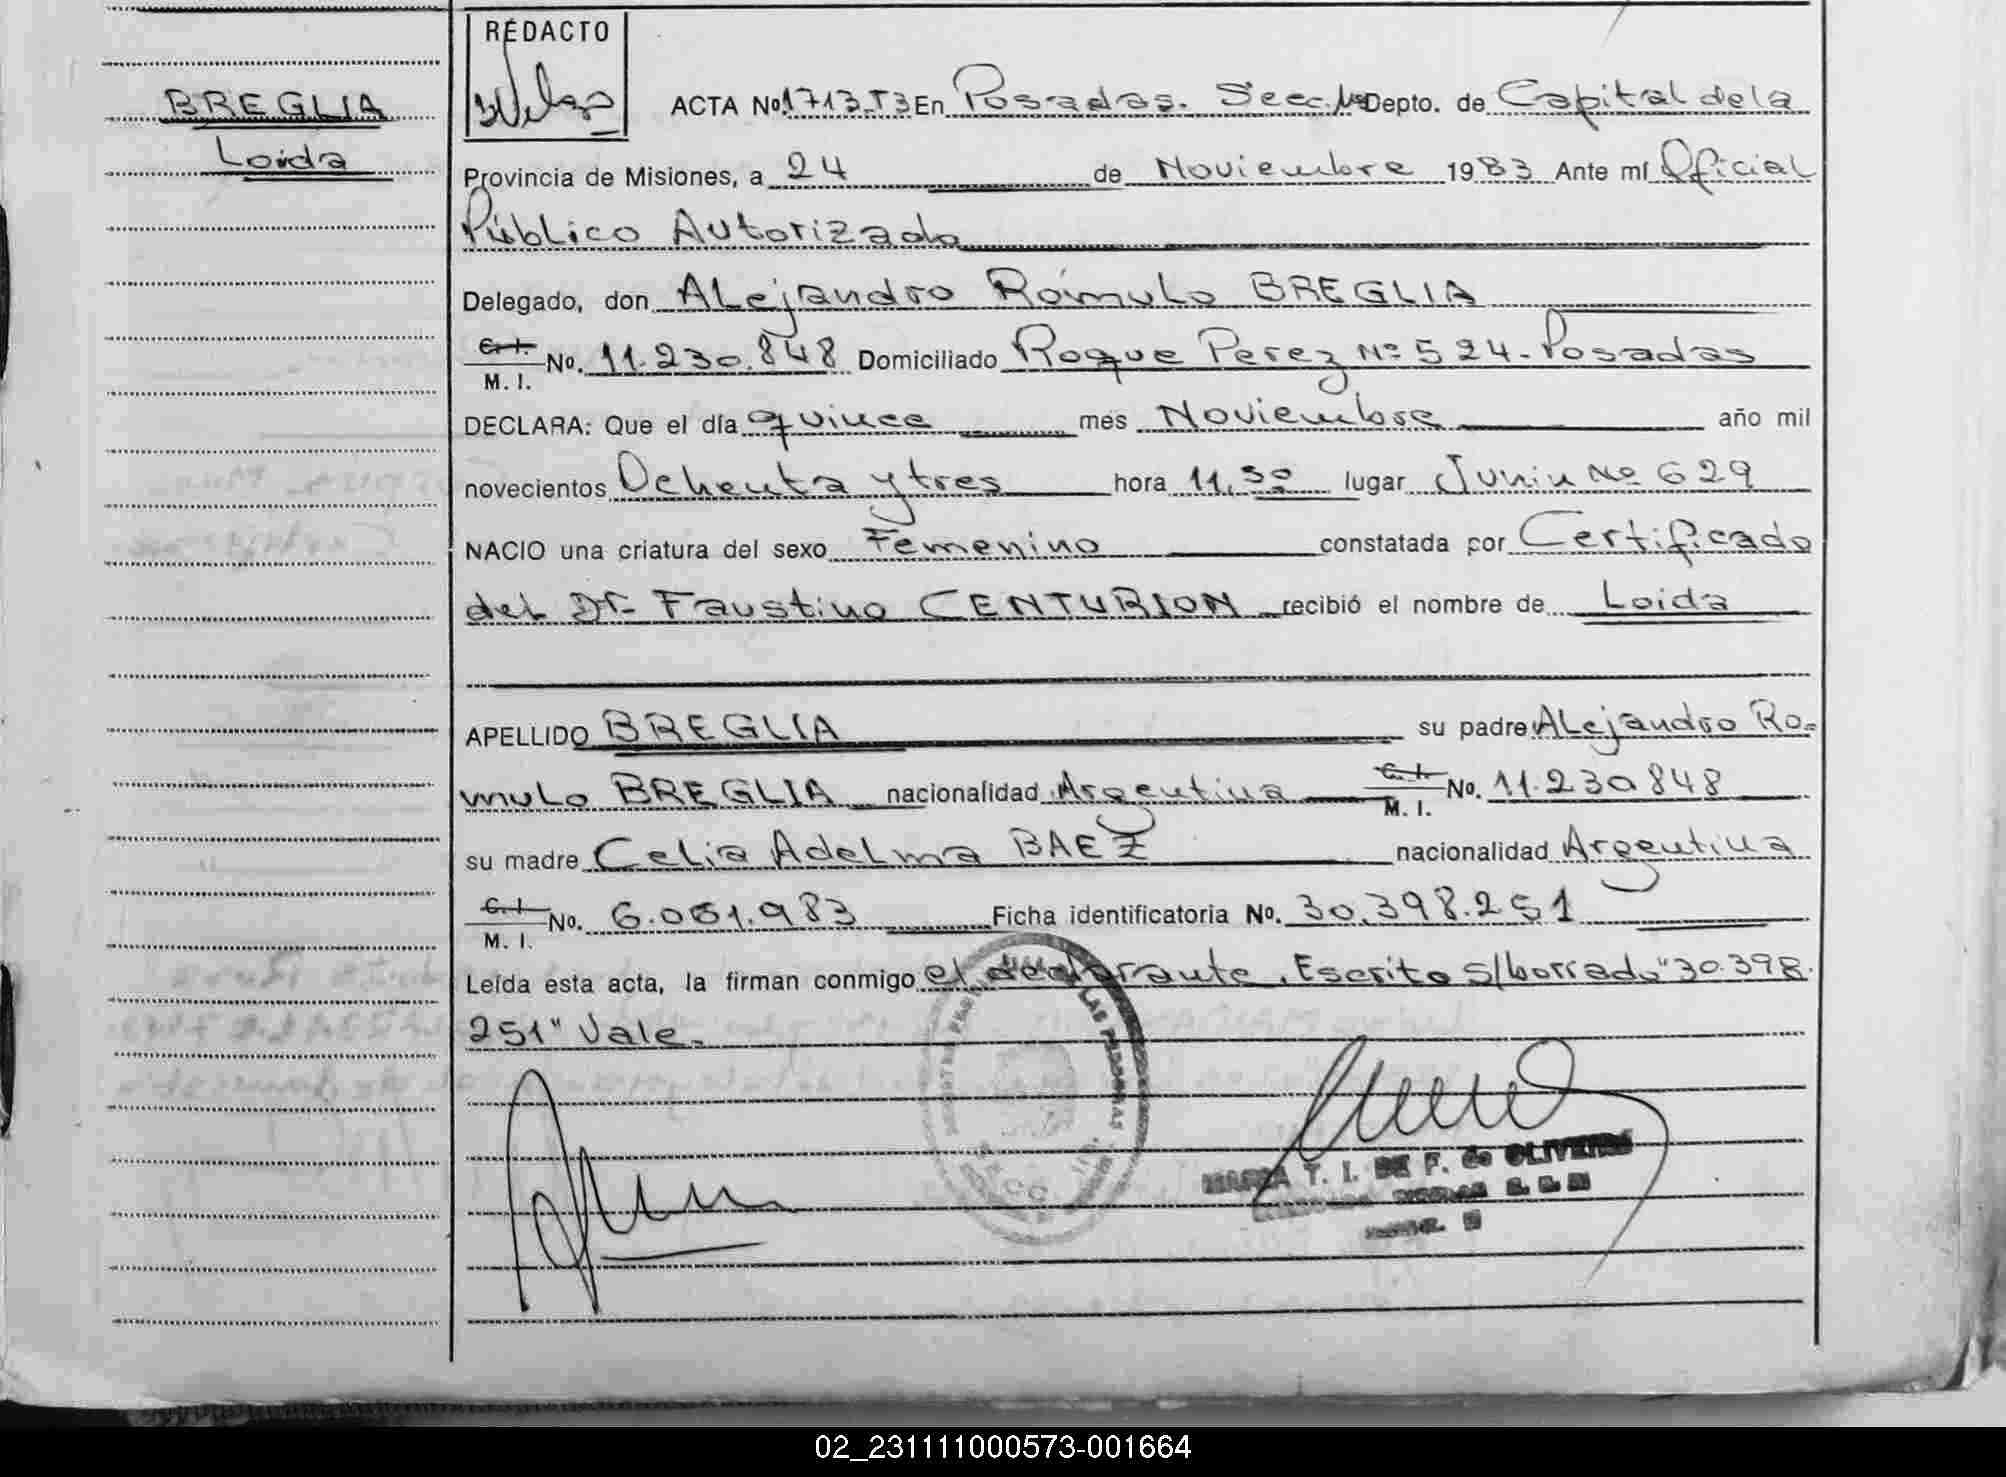 BREGLIA
Loida
REDACTO
ACTA No. 1713.T3 En Posadas. Secc. 1ª Depto. de Capital de la
Provincia de Misiones, a 24 de Noviembre 1983 Ante mí Oficial
Público Autorizado
Delegado, don Alejandro Rómulo BREGLIA
C. I. M. I. No. 11.230.848 Domiciliado Roque Perez Nº 524 - Posadas
DECLARA: Que el día quince mes Noviembre año mil
novecientos Ochenta y tres hora 11,30 lugar Junin Nº 629
NACIO una criatura del sexo Femenino constatada por Certificado
del Dr. Faustino CENTURION recibió el nombre de Loida
APELLIDO BREGLIA su padre Alejandro Ro=
mulo BREGLIA nacionalidad Argentina C. I. M. I. No. 11.230848
su madre Celia Adelma BAEZ nacionalidad Argentina
C. I. M. I. No. 6.061.983 Ficha identificatoria No. 30.398.251
Leída esta acta, la firman conmigo el declarante. Escrito s/borrado "30.398.
251" Vale.
LAS PERSONAS
MARIA T. I. DE F. de OLIVEIRA
02_231111000573-001664